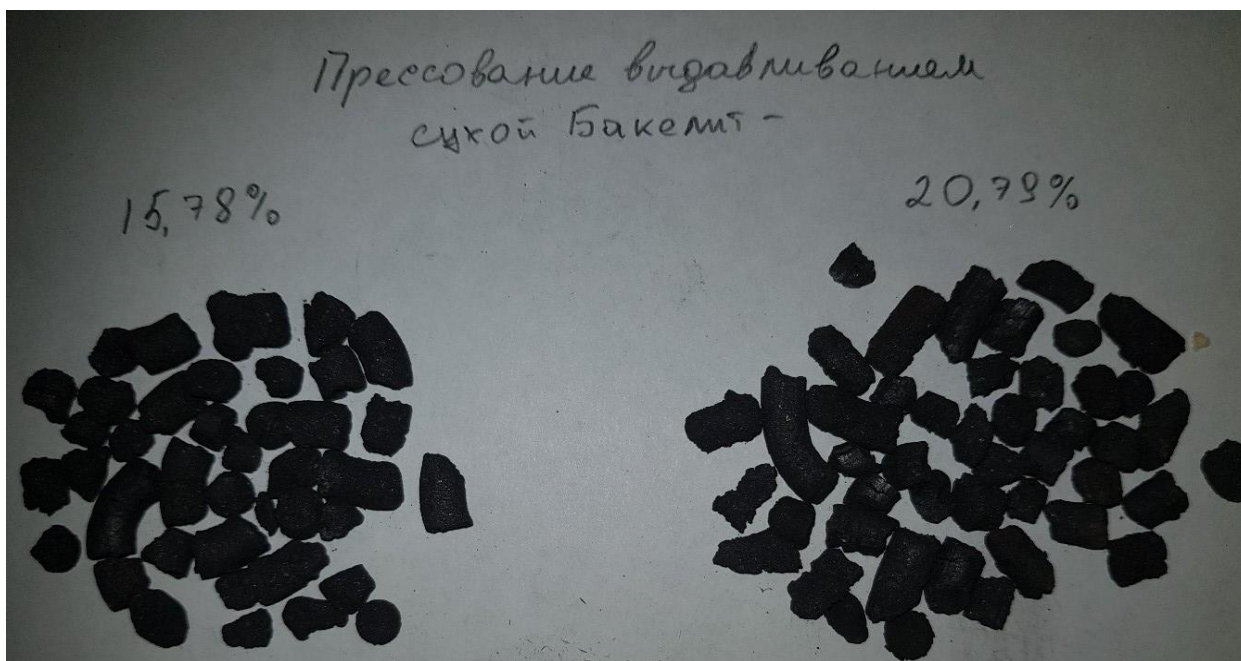 Прессование выдавливанием
сухой Бакелит -
15,78%
20,79%